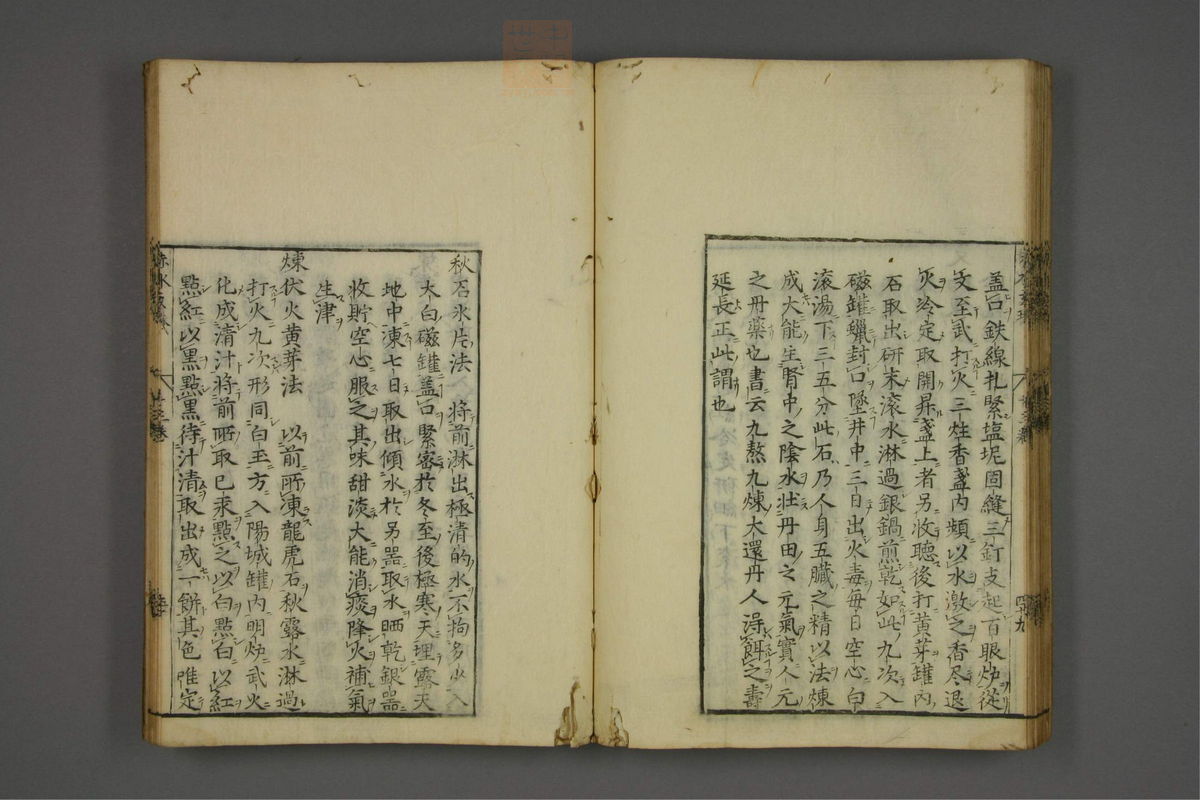 盖口鉄線扎緊塩坭固縫三釘支起百眼炉從
文至武打火三炷香盞内頻以水激之香尽退
火冷定取開昇盞上者另收聴後打黄芽罐内
石取出研末滚水淋過銀鍋煎乾如此九次入
磁罐蝋封口墜井中三日出火毒毎日空心白
滚湯下三五分此石乃人身五臓之精以法煉
成大能生腎中之陰水壮丹田之元氣實人元
之丹藥也書云九熬九煉大還丹人淂餌之壽
延長正此謂也
秋石氷片法 将前淋出極清的水不拘多少入
大白磁罐盖口緊密於冬至後極寒天埋露天
地中凍七日取出傾水於另器取氷晒乾銀器
收貯空心服之其味甜淡大能消痰降火補氣
生津
煉伏火黄芽法 以前所凍龍虎石秋露水淋過
打火九次形同白玉方入陽城罐内明炉武火
化成清汁将前晒取巳乘點之以白點白以紅
點紅以黒點黒待汁清取出成一餅其色唯定